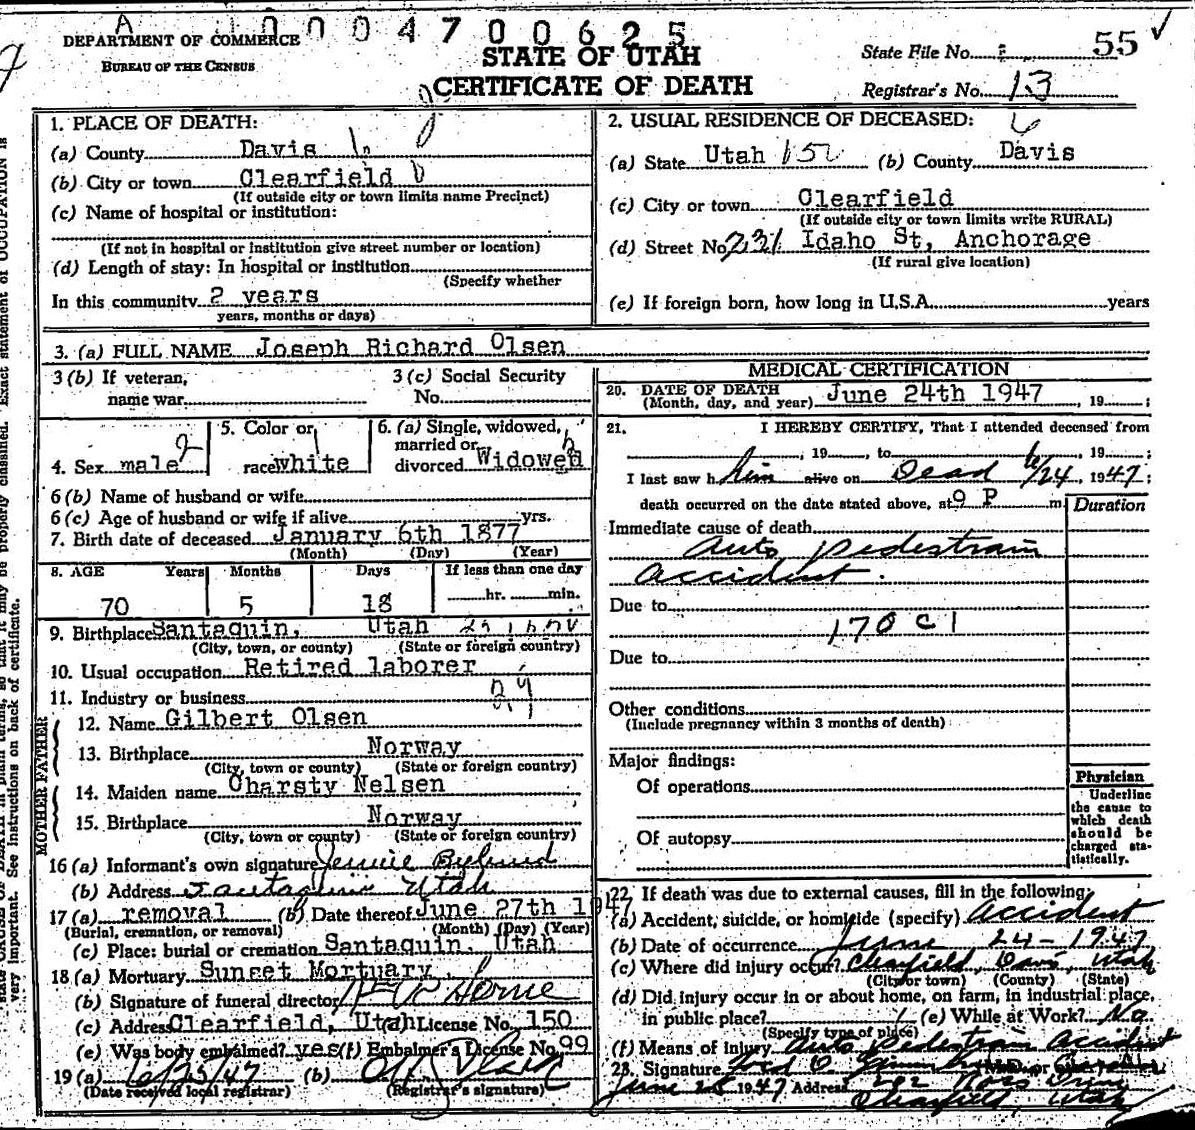 A 1 0 0 0 4 7 0 0 6 2 5
DEPARTMENT OF COMMERCE
BUREAU OF THE CENSUS
STATE OF UTAH
CERTIFICATE OF DEATH
State File No. 55 ✓
Registrar's No. 13
1. PLACE OF DEATH:
(a) County Davis
(b) City or town Clearfield
(If outside city or town limits name Precinct)
(c) Name of hospital or institution:
(If not in hospital or institution give street number or location)
(d) Length of stay: In hospital or institution
(Specify whether
In this community 2 years
years, months or days)
2. USUAL RESIDENCE OF DECEASED: 6
(a) State Utah (b) County Davis
(c) City or town Clearfield
(If outside city or town limits write RURAL)
(d) Street No 231 Idaho St, Anchorage
(If rural give location)
(e) If foreign born, how long in U.S.A. years
3. (a) FULL NAME Joseph Richard Olsen
3 (b) If veteran,
name war
3 (c) Social Security
No.
4. Sex male
5. Color or
race white
6. (a) Single, widowed,
married or
divorced Widowed
6 (b) Name of husband or wife
6 (c) Age of husband or wife if alive yrs.
7. Birth date of deceased January 6th 1877
(Month) (Day) (Year)
8. AGE Years Months Days If less than one day
70 5 18 hr. min.
9. Birthplace Santaquin, Utah
(City, town, or county) (State or foreign country)
10. Usual occupation Retired laborer
11. Industry or business
FATHER
12. Name Gilbert Olsen
13. Birthplace Norway
(City, town or county) (State or foreign country)
MOTHER
14. Maiden name Charsty Nelsen
15. Birthplace Norway
(City, town or county) (State or foreign country)
16 (a) Informant's own signature Jennie Bylund
(b) Address Santaquin Utah
17 (a) removal (b) Date thereof June 27th 1947
(Burial, cremation, or removal) (Month) (Day) (Year)
(c) Place: burial or cremation Santaquin, Utah
18 (a) Mortuary Sunset Mortuary
(b) Signature of funeral director Horne
(c) Address Clearfield, Utah (d) License No. 150
(e) Was body embalmed? yes (f) Embalmer's License No. 99
19 (a) 6/25/47 (b)
(Date received local registrar) (Registrar's signature)
MEDICAL CERTIFICATION
20. DATE OF DEATH
(Month, day, and year) June 24th 1947, 19 ;
21. I HEREBY CERTIFY, That I attended deceased from
, 19 , to , 19 ;
I last saw h him alive on Dead 6/24, 1947;
death occurred on the date stated above, at 9 P m.
Duration
Immediate cause of death
Auto pedestrain
accident.
Due to
170 c 1
Due to
Other conditions
(Include pregnancy within 3 months of death)
Major findings:
Of operations
Of autopsy
Physician
Underline
the cause to
which death
should be
charged sta-
tistically.
22. If death was due to external causes, fill in the following:
(a) Accident, suicide, or homicide (specify) Accident
(b) Date of occurrence June 24 - 1947
(c) Where did injury occur? Clearfield, Davis, Utah
(City or town) (County) (State)
(d) Did injury occur in or about home, on farm, in industrial place,
in public place? (e) While at Work? No
(Specify type of place)
(f) Means of injury Auto pedestrain Accident
23. Signature
1947 Address Ross Drive
Clearfield, Utah